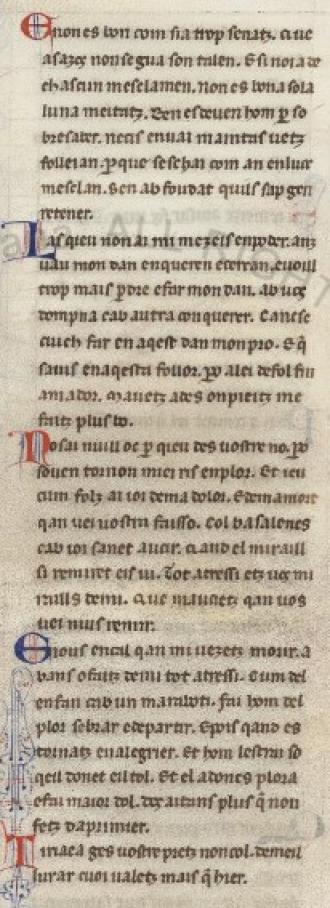 E non es bon com sia trop senatz. que
asazez non segua son talen. E si noi a de
chascun mesclamen. non es bona sola
luna meitatz. Ben es deuen hom p so
bresaber. necis en uai maintas uetz
folleian. p que seschai com an en luec
mesclan. sen ab foudat quils sap gen
retener.
Las qieu non ai mi mezeis en poder. anz
uau mon dan enqueren e cercan. e uoill
trop mais pdre e far mon dan. ab uos
dompna cab autra conquerer. Cancse
cuich far en aqest dan mon pro. E q̃
sauis en aqesta folor. po a lei de fol fin
amador. mauetz ades on pieitz me
faitz plus bo.
Nosai nuill oc p qieu des uostre no. po
souen tornon miei ris en plor. Et ieu
cum folz ai ioi de ma dolor. E de ma mort
qan uei uostra faisso. Col basalesc
cab ioi sanet aucir. qand el miraill
si remiret eis ui. Tot atressi etz uos mi
raills de mi. Que mauciretz qan uos
uei nius remir.
E nous en cal qan mi uezetz morir. a
bans o faitz de mi tot atressi. Cum del
enfan cab un maraboti. fai hom del
plor sebrar e departir. E pois qand es
tornatz en alegrier. Et hom lestrai so
qeill donet eill tol. Et el adoncs plora
e fai maior dol. dos aitans plus q̃ non
fetz daprimier.
T iraea ges uostre pretz non col. de meil
lurar cuoi ualetz mais q̃ hier.